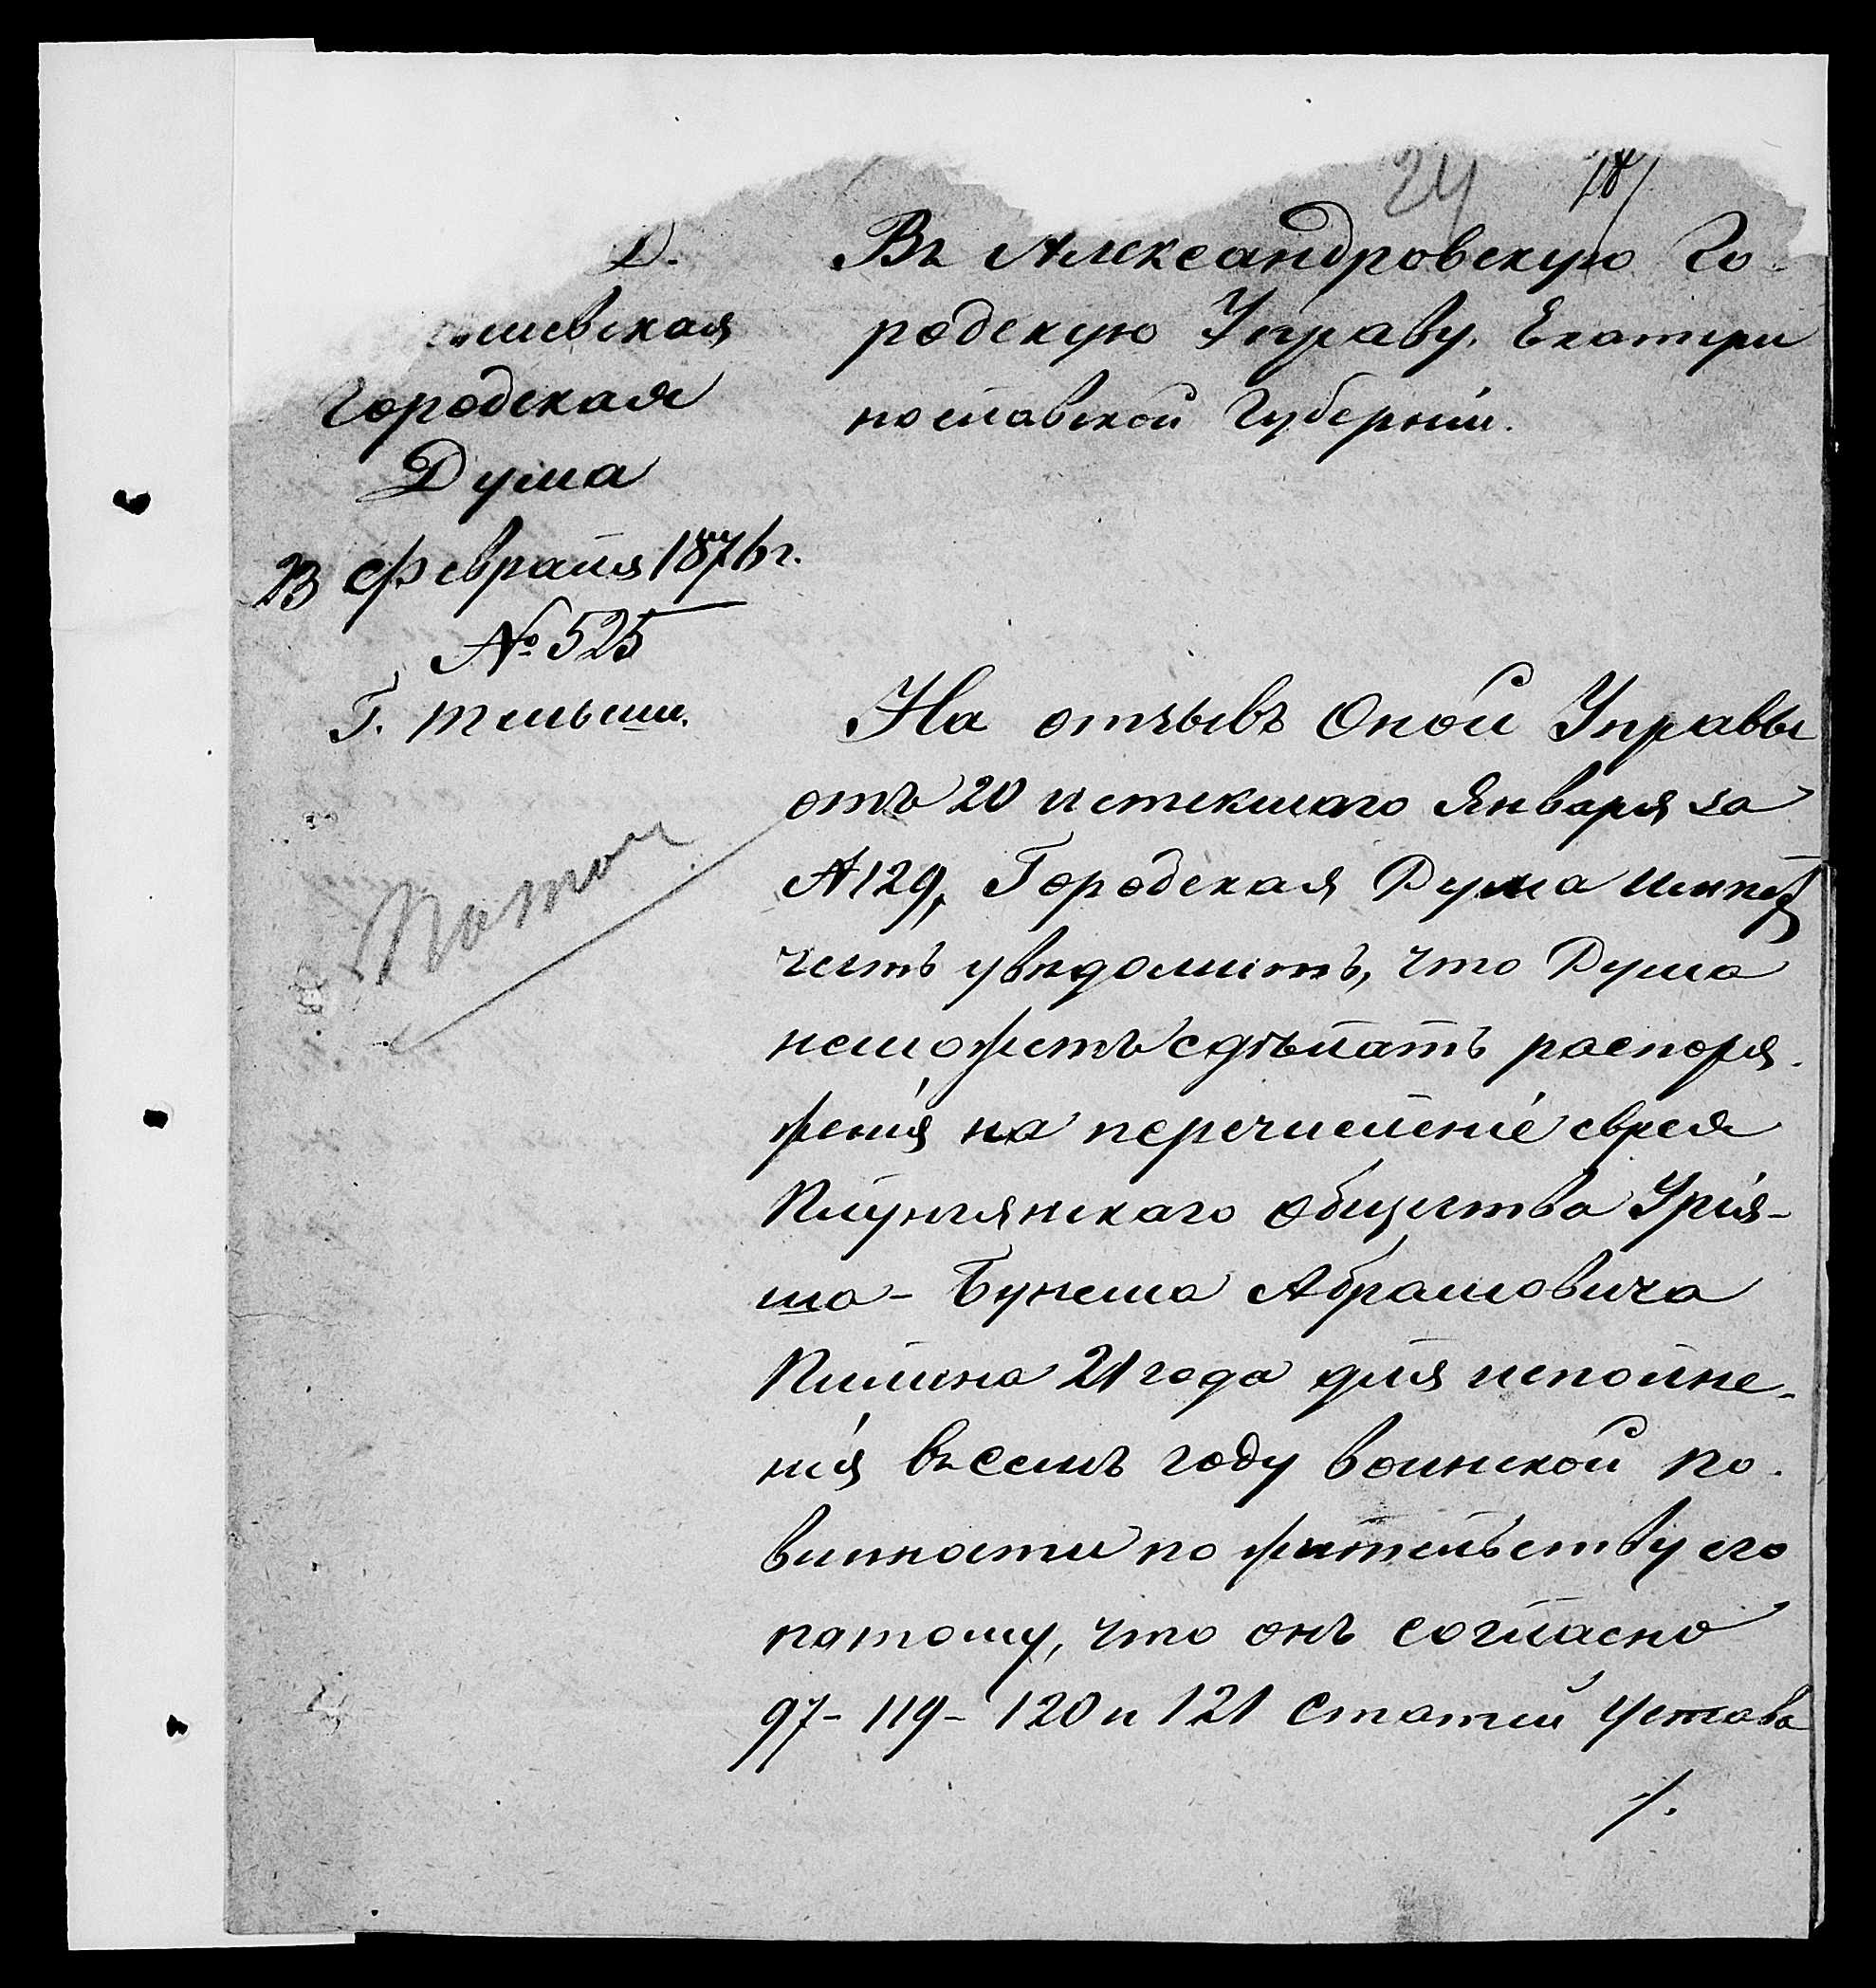 24
Д.
шевская
Городская
Дума
Февраля 1876 г.
№ 525
Г. Тельши.
Въ Александровскую Го-
родскую Управу, Екатери
нославской Губерніи.
На отзывъ Оной Управы
отъ 20 истекшаго Января за
№ 129, Городская Дума имѣетъ
честь увѣдомить, что Дума
неможетъ сдѣлать распоря-
женія на перечисленіе еврея
Плунгянскаго общества Урія-
ша-Бунема Абрамовича
21 года для исполне-
нія въ семъ году воинской по-
винности по жительству его
потому, что онъ согласно
97-119-120 и 121 Статей Устава
./.